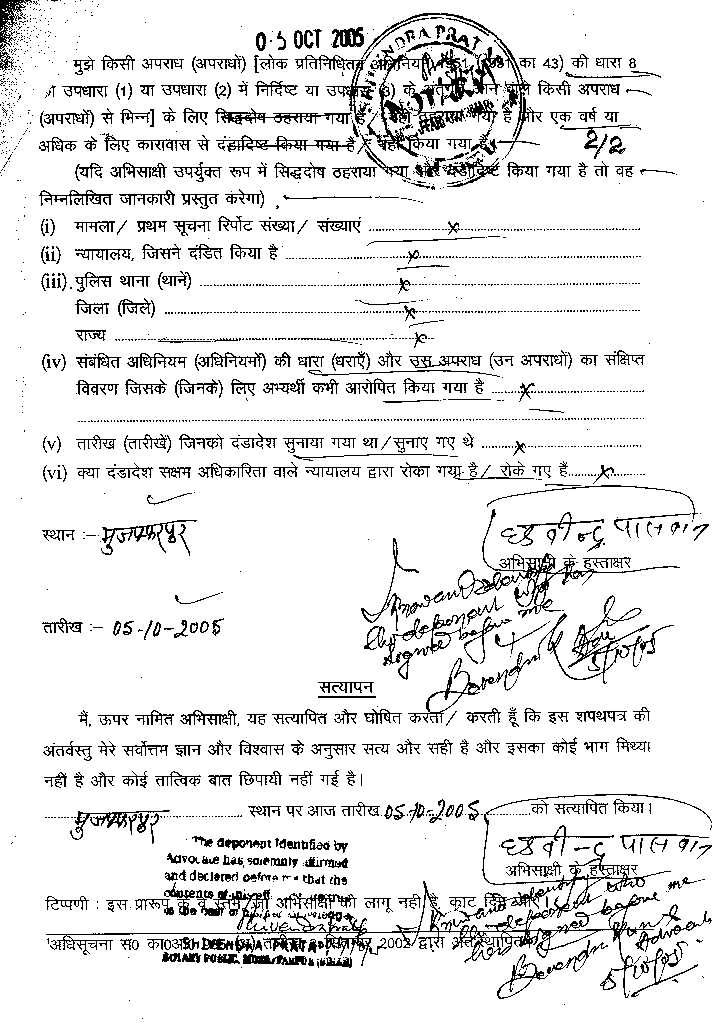 05 OCT 2005
मुझे किसी अपराध (अपराधों) [लोक प्रतिनिधित्व अधिनियम 1951 (1951 का 43) की धारा 8
उपधारा (1) या उपधारा (2) में निर्दिष्ट या उपधारा (3) के अंतर्गत आने वाले किसी अपराध
(अपराधों) से भिन्न] के लिए सिद्धदोष ठहराया गया है / नहीं ठहराया गया है और एक वर्ष या
अधिक के लिए कारावास से दंडादिष्ट किया गया है / नहीं किया गया है
2/2
(यदि अभिसाक्षी उपर्युक्त रूप में सिद्धदोष ठहराया गया और दंडादिष्ट किया गया है तो वह
निम्नलिखित जानकारी प्रस्तुत करेगा)
(i) मामला / प्रथम सूचना रिर्पोट संख्या / संख्याएं ........ x ........
(ii) न्यायालय, जिसने दंडित किया है ........ x ........
(iii) पुलिस थाना (थाने) ........ x ........
जिला (जिले) ........ x ........
राज्य ........ x ........
(iv) संबंधित अधिनियम (अधिनियमों) की धारा (धराएँ) और उस अपराध (उन अपराधों) का संक्षिप्त
विवरण जिसके (जिनके) लिए अभ्यर्थी कभी आरोपित किया गया है ........ x ........
(v) तारीख (तारीखें) जिनको दंडादेश सुनाया गया था / सुनाए गए थे ........ x ........
(vi) क्या दंडादेश सक्षम अधिकारिता वाले न्यायालय द्वारा रोका गया है / रोके गए हैं ........ x ........
स्थान :– मुजफ्फरपुर
अभिसाक्षी के हस्ताक्षर
the deponent who has
signed before me
तारीख :– 05-10-2005
5/10/05
सत्यापन
मैं, ऊपर नामित अभिसाक्षी, यह सत्यापित और घोषित करता / करती हूँ कि इस शपथपत्र की
अंतर्वस्तु मेरे सर्वोत्तम ज्ञान और विश्वास के अनुसार सत्य और सही है और इसका कोई भाग मिथ्या
नहीं है और कोई तात्विक बात छिपायी नहीं गई है।
मुजफ्फरपुर ........ स्थान पर आज तारीख 05-10-2005 ........ को सत्यापित किया।
अभिसाक्षी के हस्ताक्षर
The deponent identified by
Advocate has solemnly affirmed
and declared before me that the
contents of
टिप्पणी : इस प्रारूप के वे स्तंभ जो अभिसाक्षी को लागू नहीं है, काट दिये जाएं।
the deponent who
has signed before me
Advocate
5/10/05
NOTARY PUBLIC, MUZAFFARPUR (BIHAR)